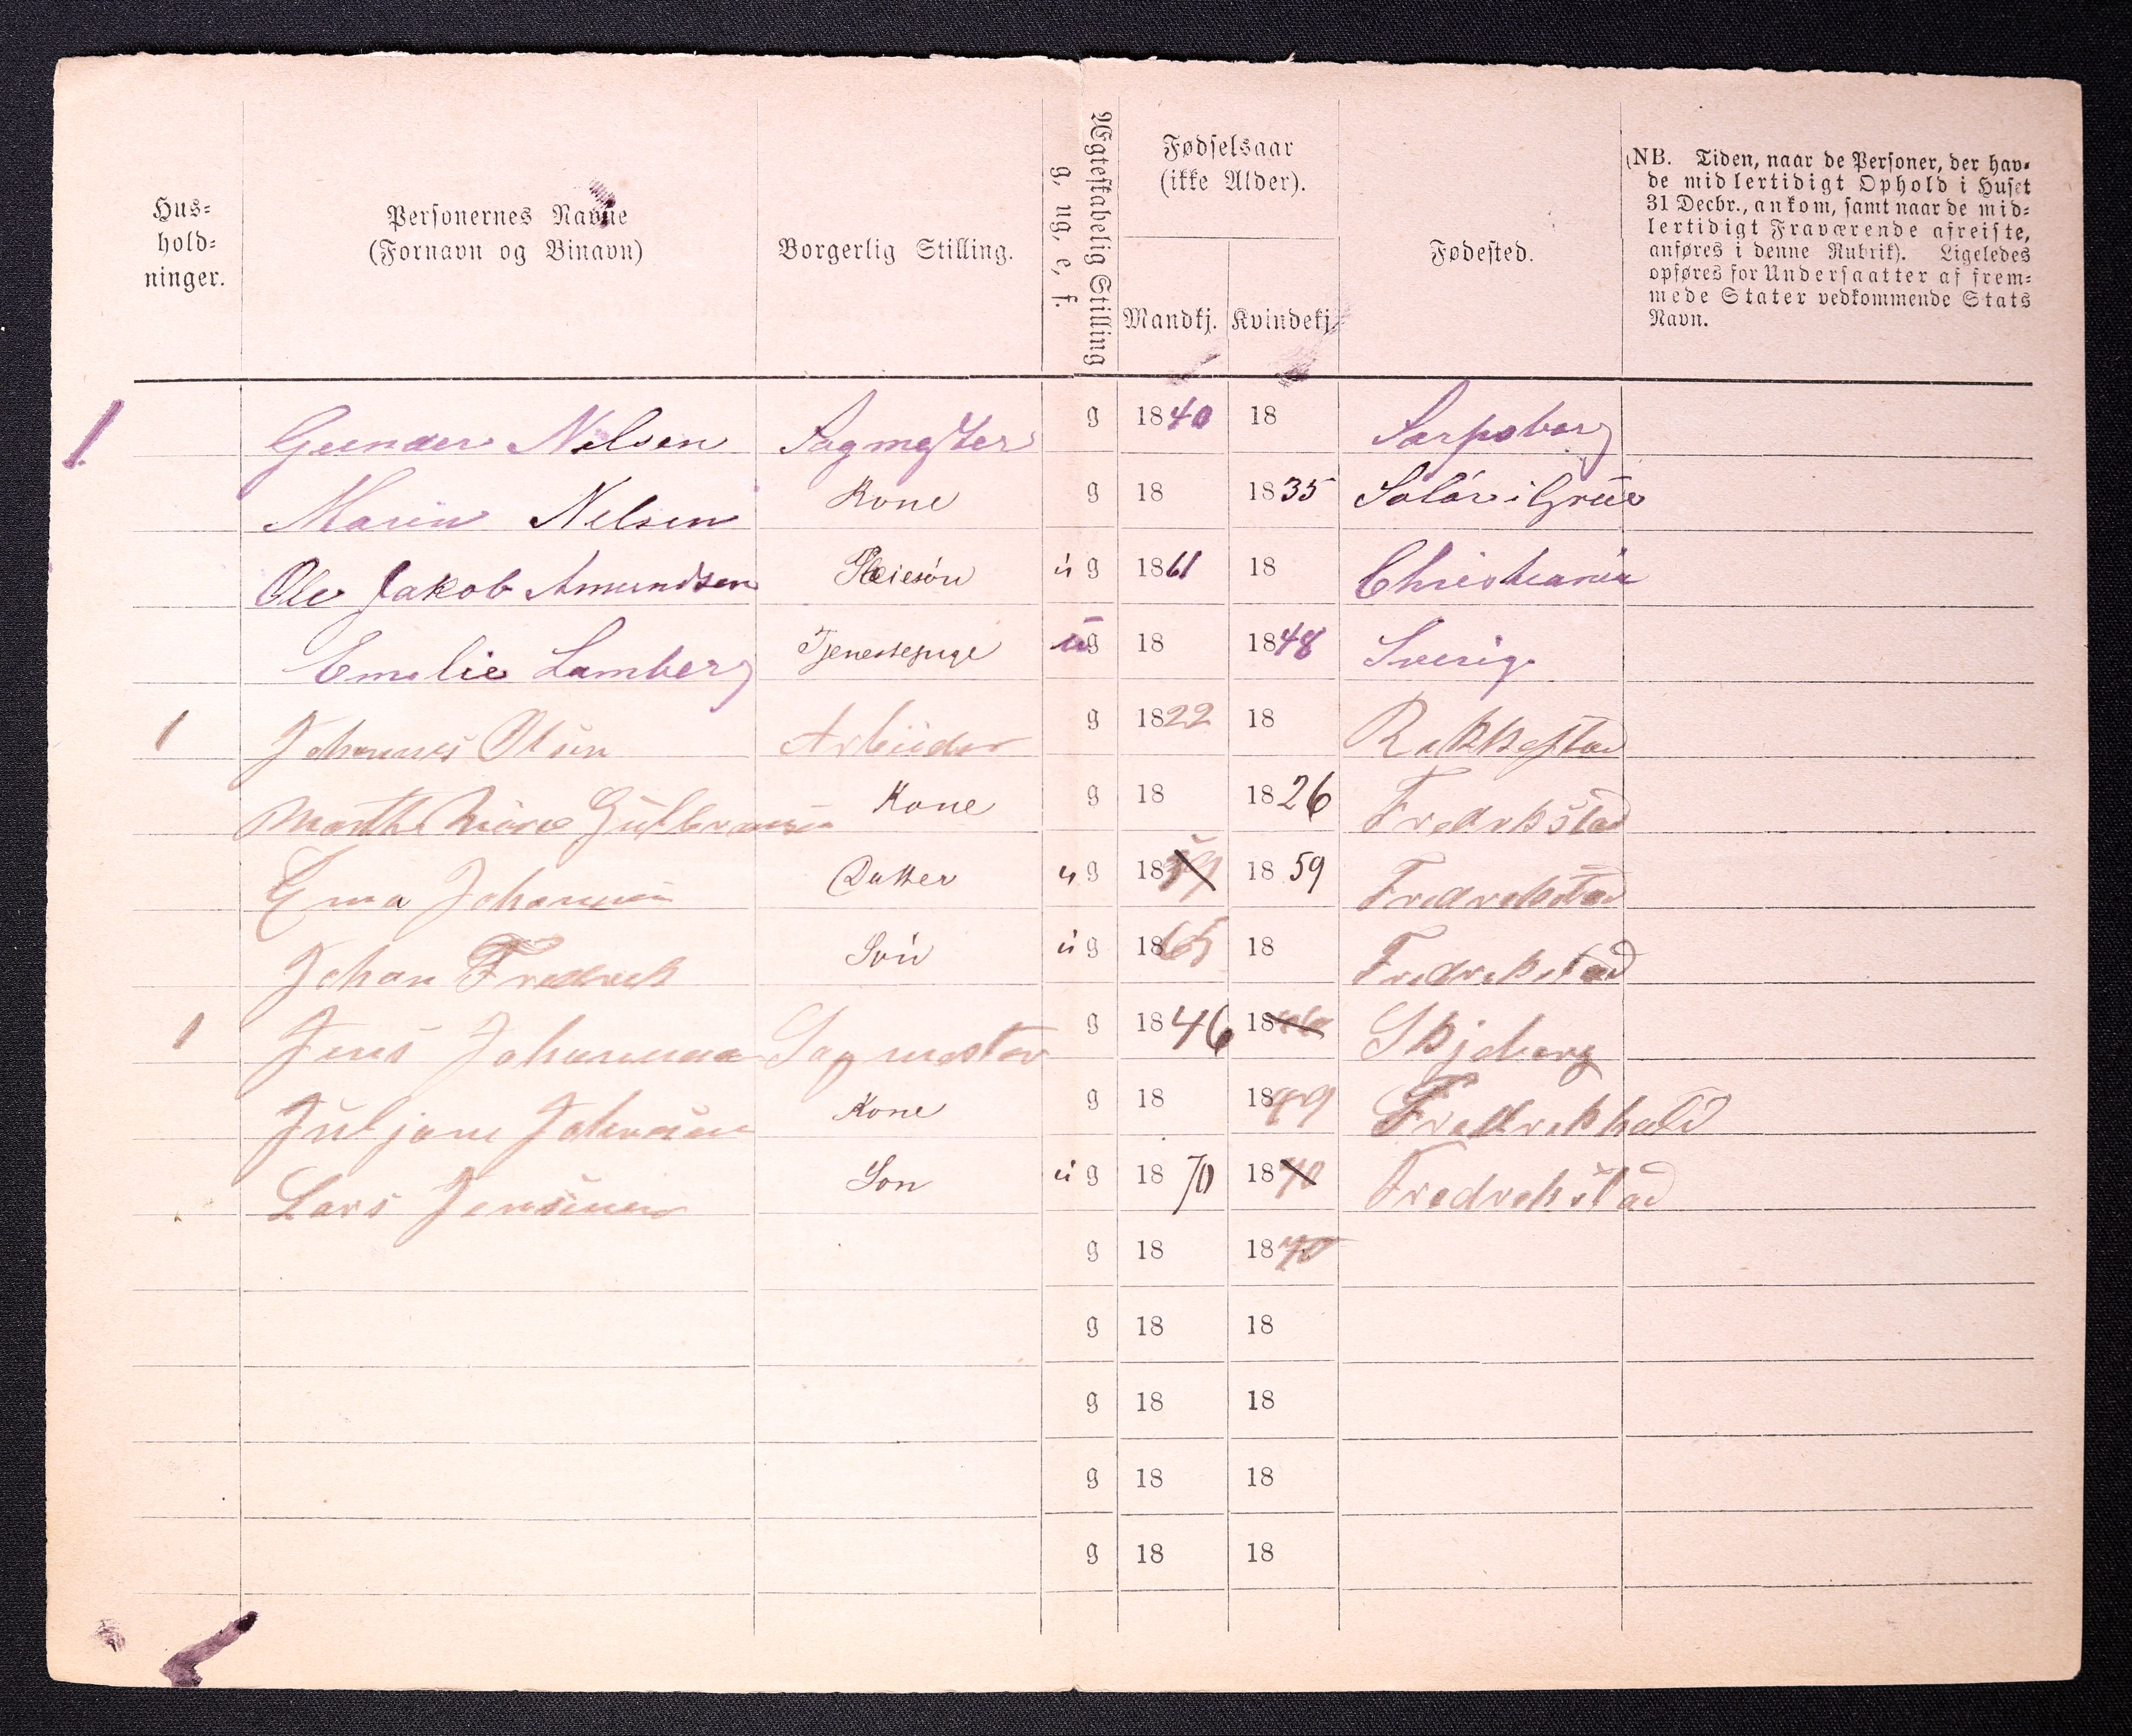 Hus-
hold-
ninger.
Personernes Navne
(Fornavn og Binavn)
Borgerlig Stilling.
Ægteskabelig Stilling
g, ug, e, f.
Fødselsaar
(ikke Alder).
Mandkj. Kvindekj.
Fødested.
(NB. Tiden, naar de Personer, der hav-
de midlertidigt Ophold i Huset
31 Decbr., ankom, samt naar de mid-
lertidigt Fraværende afreiste,
anføres i denne Rubrik). Ligeledes
opføres for Undersaatter af frem-
mede Stater vedkommende Stats
Navn.
1 Gunder Nilsen Sagmester g 1840 18 Sarpsborg
Maren Nelsen Kone g 18 1835 Solør i Grue
Ole Jakob Amundsen Pleiesön ug 1861 18 Christiania
Emelie Lamberg Tjenestepige ug 18 1848 Sverige
1 Johannes Olsen Arbeider g 1822 18 Rakkestad
Marthe Gulbransen Kone g 18 1826 Fredrkstad
Ema Johannesen Datter ug 1859 1859 Fredrekstad
Johan Fredrek Sön ug 1865 18 Fredrekstad
1 Jens Johannesen Sagmester g 1846 1846 Skjeberg
Juljane Johnsen Kone g 18 1849 Fredrekhald
Lars Jensen Son ug 1870 1870 Fredrekstad
g 18 1870
g 18 18
g 18 18
g 18 18
g 18 18